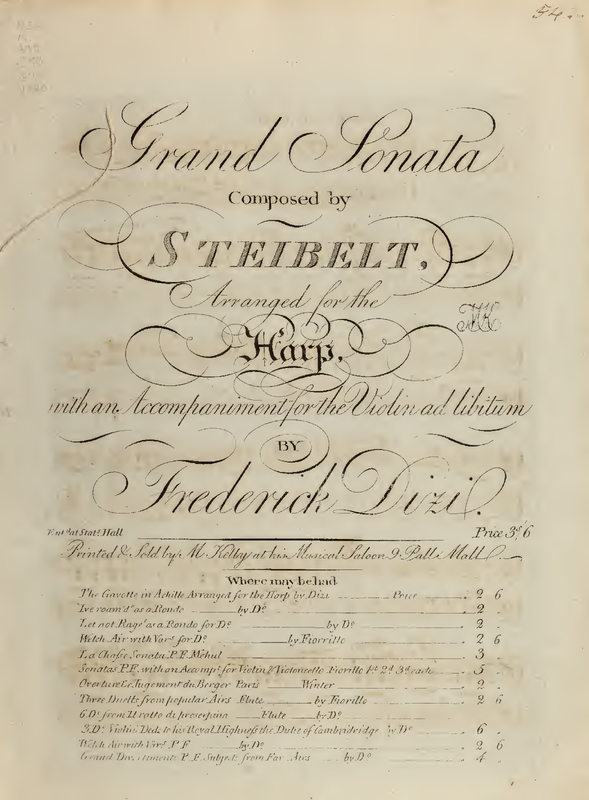 54.
Grand Sonata
Composed by
STEIBELT,
Arranged for the
Harp,
with an Accompaniment for the Violin ad libitum
BY
Frederick Dizi.
Ent.d at Stat.s Hall
Price 3.s 6
Printed & Sold by M. Kelly at his Musical Saloon 9 Pall Mall
Where may be had
The Gavotte in Achille Arranged for the Harp by Dizi Price 2 6
I've roam'd as a Rondo by D.o 2
Let not Rage as a Rondo for D.o by D.o 2
Welch Air with Var.s for D.o by Fiorrillo 2 6
La Chasse Sonata P.F. Méhul 3
Sonatas P.F. with an Accomp.t for Violin & Violoncello Fiorillo 1.st 2.d 3.d each 5
Overture Le Jugement du Berger Paris Winter 2
Three Duetts from popular Airs Flute by Fiorillo 2 6
6 D.o from Il ratto di proserpina Flute by D.o
3 D.o Violin Ded. to his Royal Highness the Duke of Cambridridge by D.o 6
Welch Air with Var.s P.F. by D.o 2 6
Grand P.F. Subjects from Fav. Airs by D.o 4